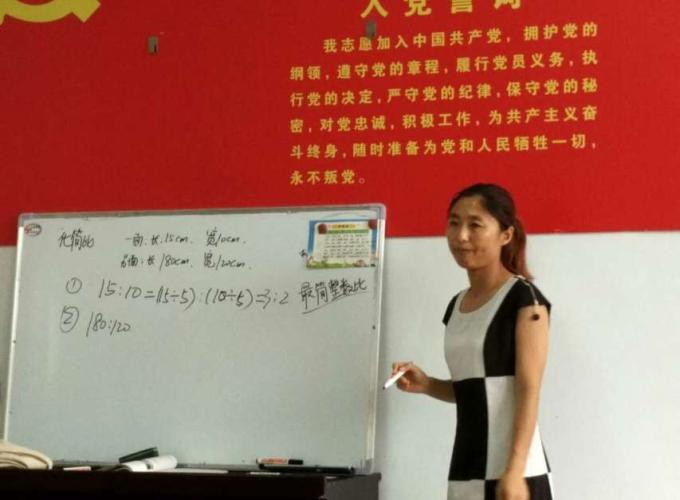 入党誓词
我志愿加入中国共产党，拥护党的
纲领，遵守党的章程，履行党员义务，执
行党的决定，严守党的纪律，保守党的秘
密，对党忠诚，积极工作，为共产主义奋
斗终身，随时准备为党和人民牺牲一切，
永不叛党。
化简比 一面：长15cm，宽10cm。
另面：长180cm，宽120cm。
① 15:10=(15÷5):(10÷5)=3:2 最简整数比
② 180:120